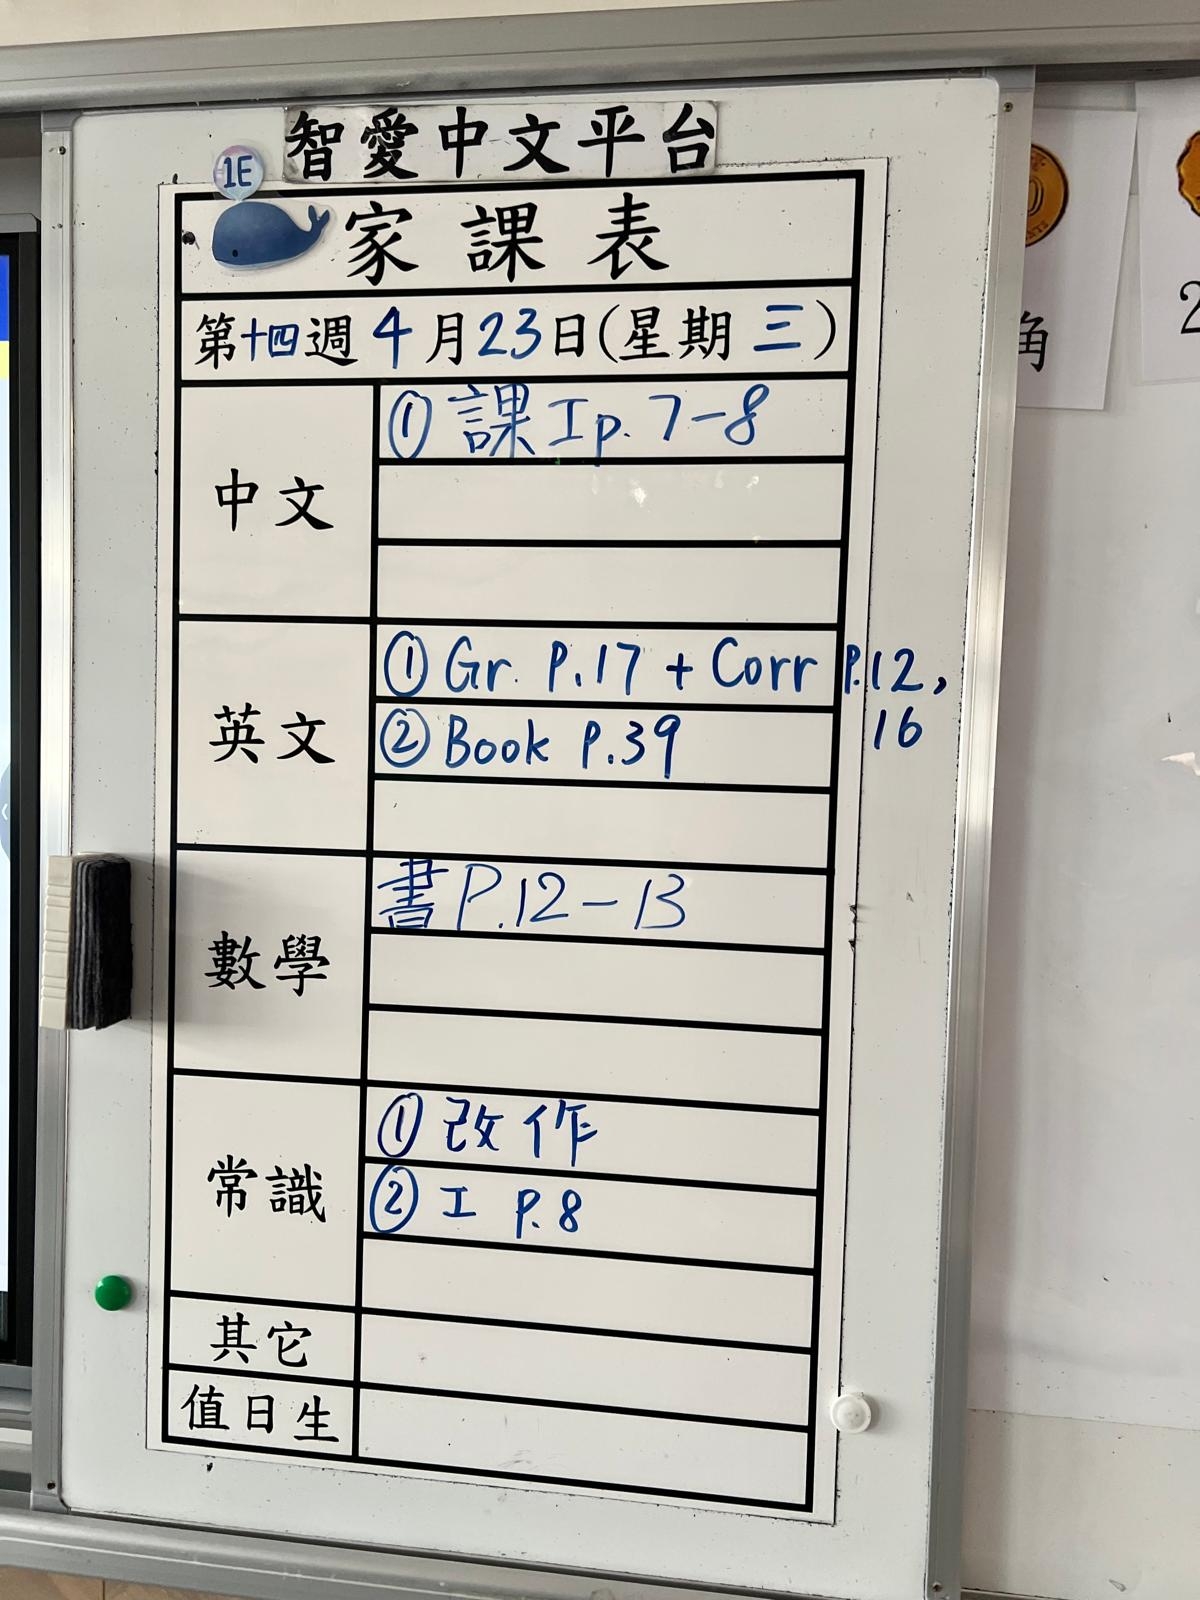 智愛中文平台
1E
家課表
第十四週4月23日(星期三)
中文
① 課工p. 7-8
英文
① Gr. P.17 + Corr P.12,
16
② Book P.39
數學
書P.12-13
常識
① 改作
② 工 P.8
其它
值日生
角
2